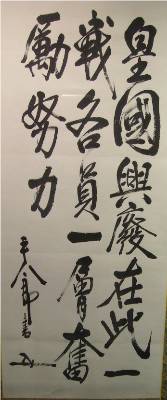 皇國興廢在此一
戰各員一層奮
勵努力
平八郎書